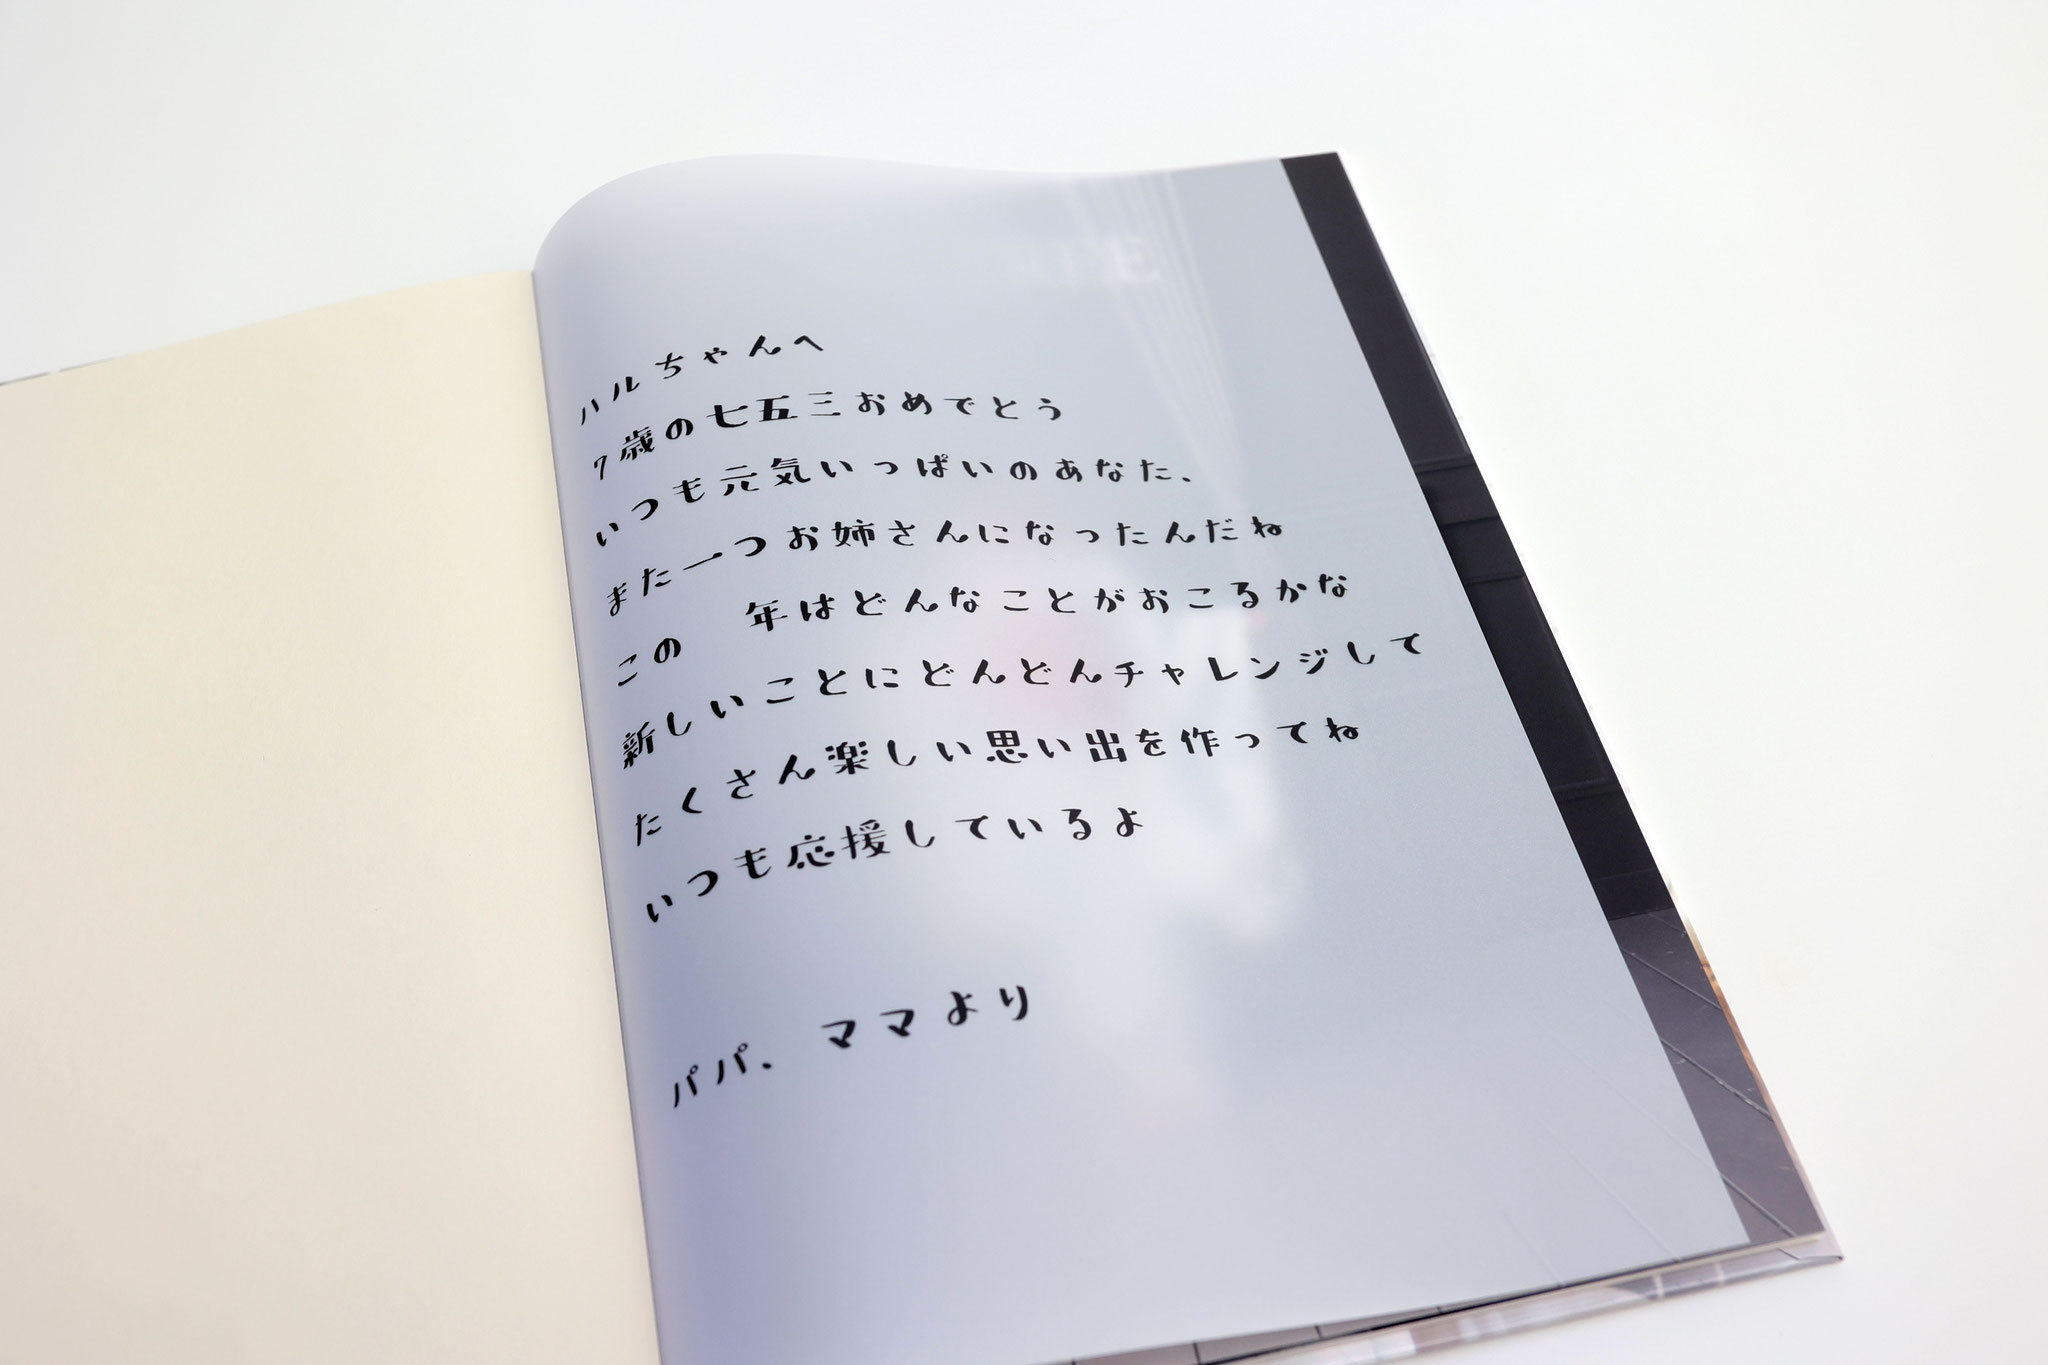 ハルちゃんへ
7歳の七五三おめでとう
いつも元気いっぱいのあなた、
また一つお姉さんになったんだね
この　年はどんなことがおこるかな
新しいことにどんどんチャレンジして
たくさん楽しい思い出を作ってね
いつも応援しているよ
パパ、ママより